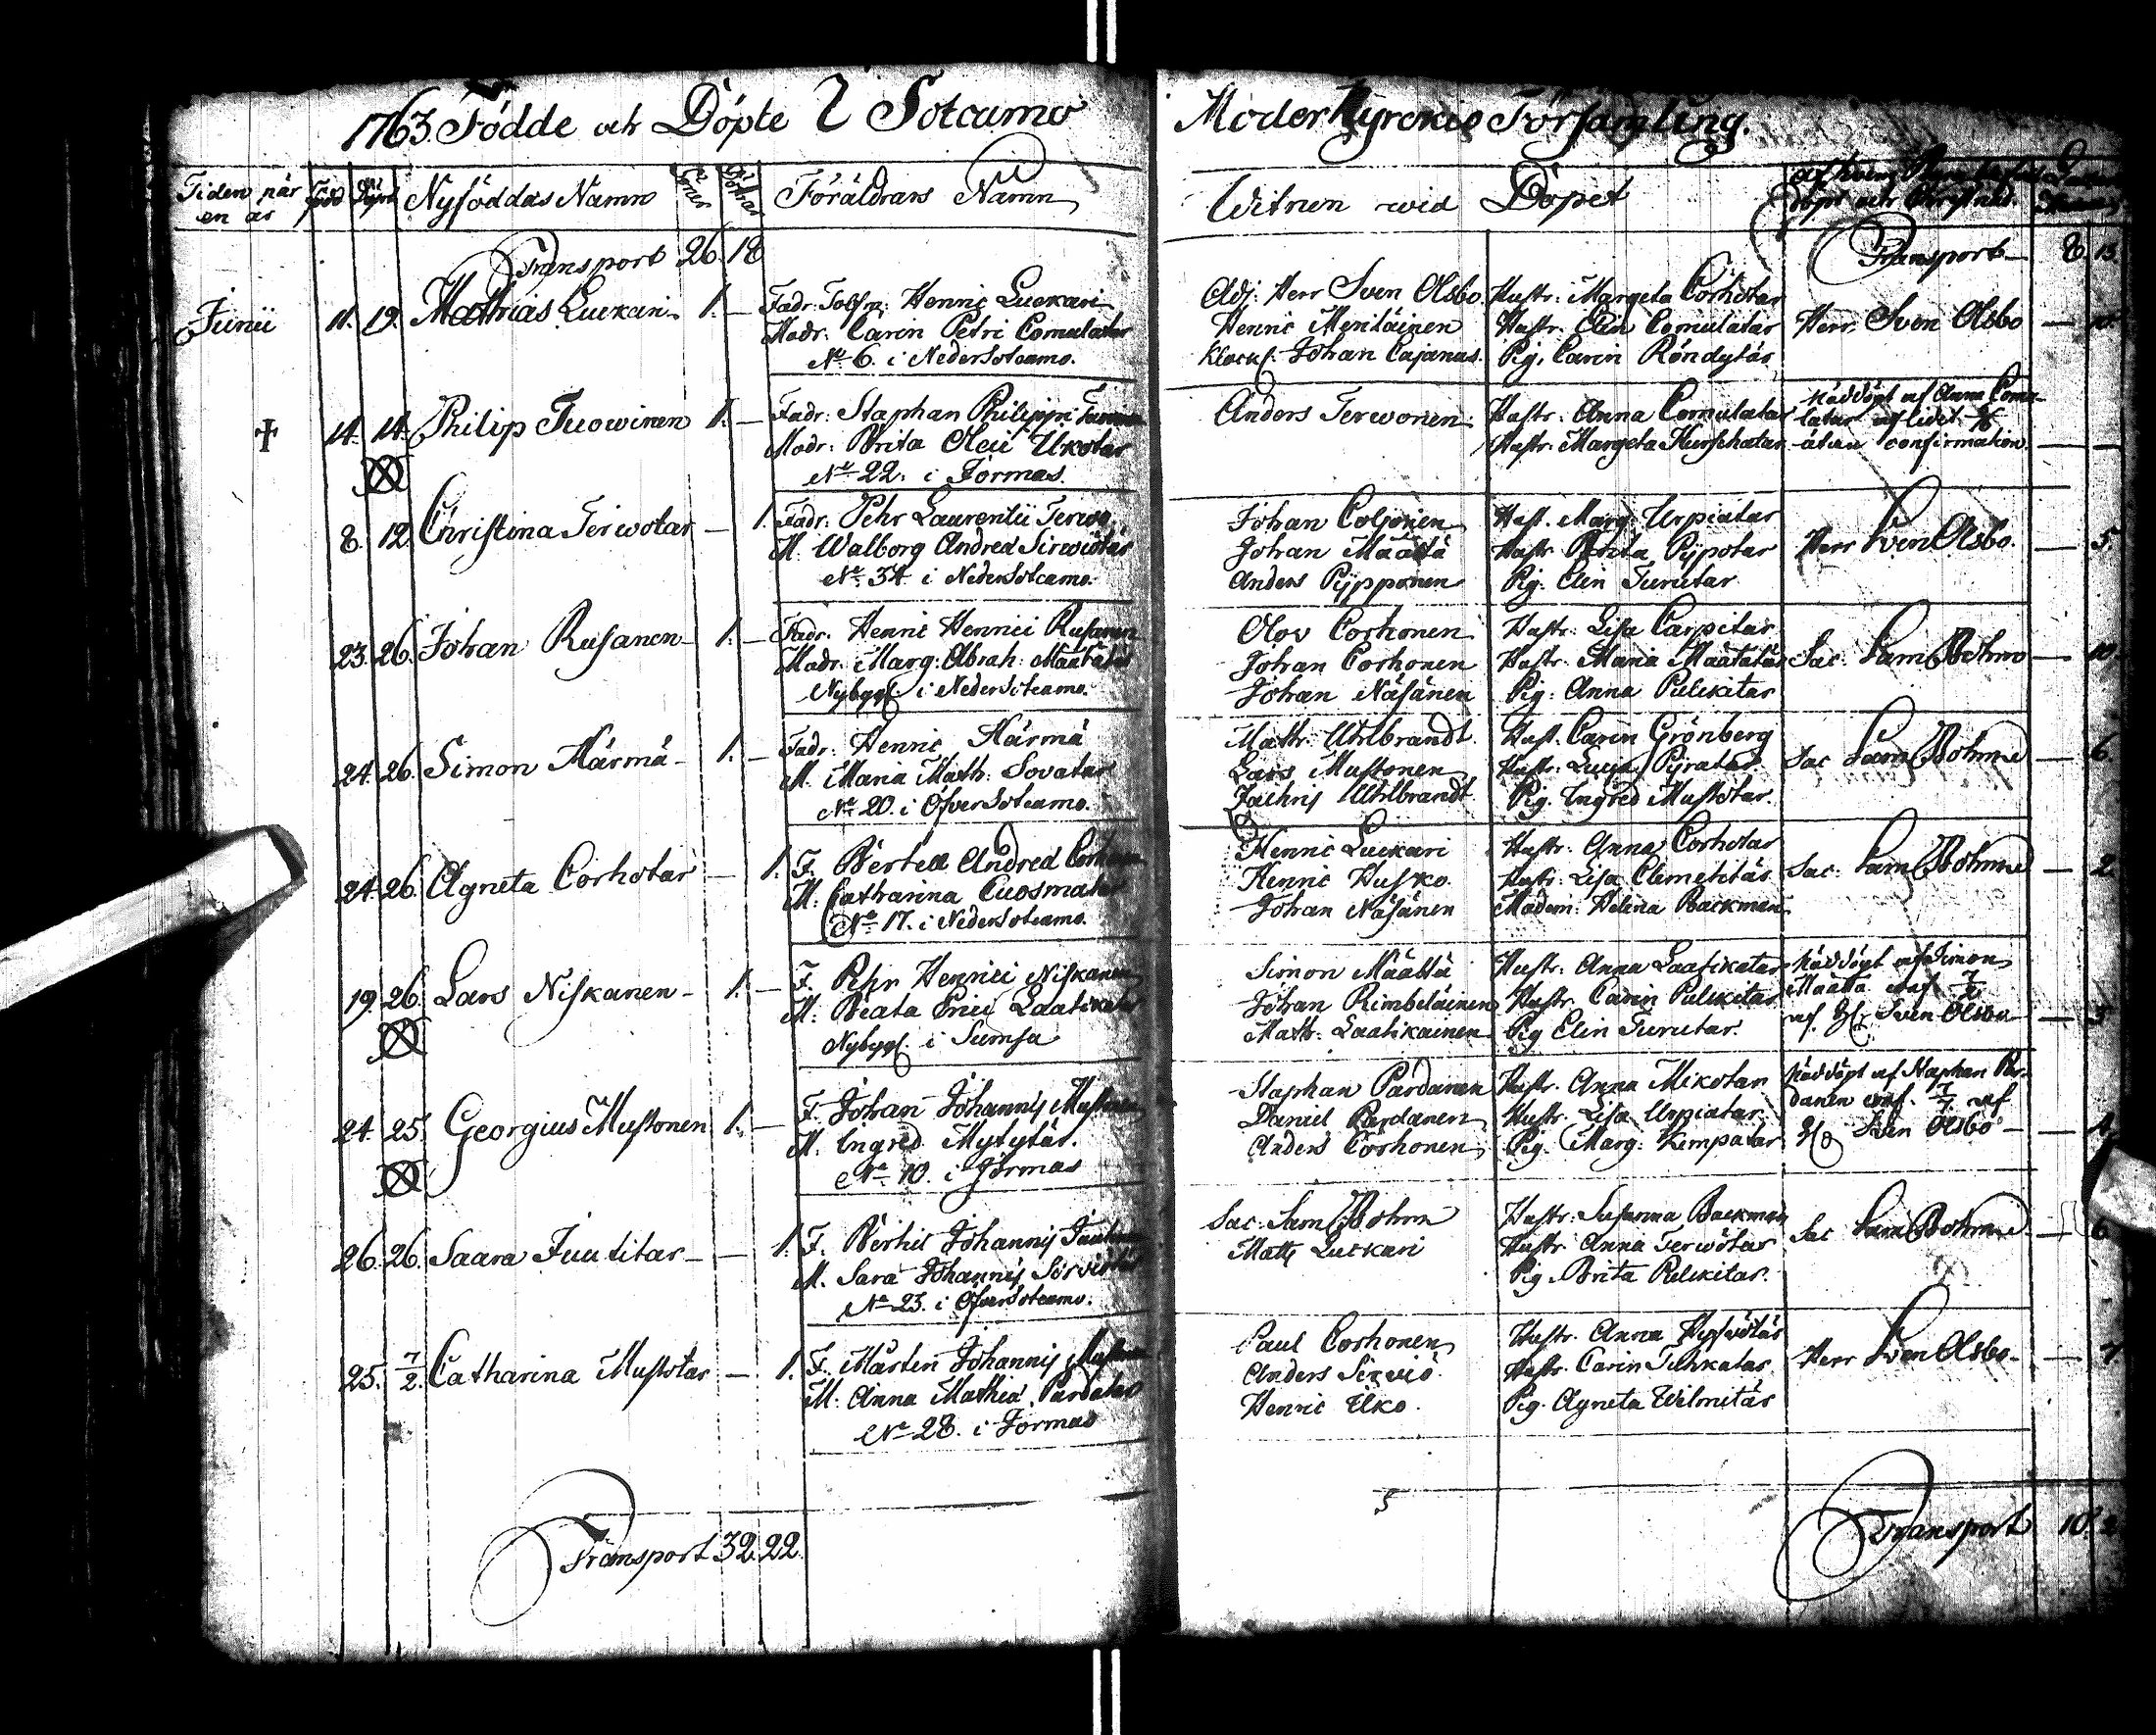 1763. Födde och Döpte I Sotcamo
Moder Kyrckio Församling.
Tiden när en är
Född
Döpt
Nyföddas Namn
Söner
Döttrar
Föräldrars Namn
Witnen wid Döpet
döpt och Christnad.
Transport 26. 18
Transport 8. 13.
Junii 11. 19. Mathias Luckari 1. —
Fadr: Tolfm: Henric Luckari
Modr: Carin Petri Comulatar
No 6. i NederSotcamo.
Adj: Herr Sven Olsbo. Hustr: Margeta Corhotar
Henric Mentäinen Hustr: Elin Comulatar Herr Sven Olsbo —
Klock: Johan Cajanus. Pig. Carin Röndytär
14. 14. Philip Tuowinen 1. —
Fadr: Staphan Philippi
Modr: Brita Olai Ulkotar
No 22. i Jormas.
Anders Terwonen Hustr: Anna Comulatar nöddöpt af Anna Comu-
latar aflidit
Hustr: Margeta Hurskatar utan confirmation. — —
8. 12. Christina Terwotar — 1.
Fadr: Pehr Laurentii Terwo
M. Walborg Andreæ Sirwiötär
No 34. i NederSotcamo.
Johan Coljonen Hust. Marg: Urpiatar
Johan Määttä Hustr Brita Pijpotar Herr Sven Olsbo. — 5.
Anders Pijpponen Pig. Elin Turutar
23. 26. Johan Rusanen 1. —
Fadr. Henric Henrici Rusanen
Modr. Marg: Abrah: Määtätär
Nybygg: i NederSotcamo.
Olov Corhonen Hustr: Lisa Carpitar
Johan Corhonen Hustr. Maria Määtätär Sac. Sam Bohm — 10.
Johan Näsänen Pig: Anna Pulkitar
24. 26. Simon Härmä 1. —
Fadr: Henric Härmä
M. Maria Math: Sovatar
No 20. i ÖfverSotcamo.
Math: Uhlbrandt Hust. Carin Grönberg
Lars Mustonen Hustr: Lucia Pijratar Sac Sam Bohm — 6.
Zachris Uhlbrandt Pig. Ingred Mustotar.
24. 26. Agneta Corhotar — 1.
F. Bertell Andreæ
M: Catharina Cuosmatar
No 17. i NederSotcamo.
Henric Luckari Hustr: Anna Corhotar
Henric Husko Hustr: Lisa Clemetitär Sac: Sam Bohm — 2
Johan Näsänen Madem: Helena Backman
19. 26. Lars Niskanen 1. —
F. Pehr Henrici Niskanen
M: Beata Erici Laatikatar
Nybygg: i Sumsa
Simon Määttä Hustr: Anna Laatikatar nöddöpt af Simon
Johan Rimbiläinen Hustr. Carin Pulkitar Määttä conf. 7/2
Math: Laatikainen Pig Elin Turutar. af H: Sven Olsbo —
24. 25. Georgius Mustonen 1. —
F. Johan Johannis Mustonen
M. Ingred Mytytär.
No 10. i Jormas
Staphan Pardanen Hustr. Anna Mikotar nöddöpt af Staphan Par-
Daniel Pardanen Hustr. Lisa Urpiatar danen conf. 7/7 af
Anders Corhonen Pig. Marg: Kimpatar H: Sven Olsbo —
26. 26. Saara Juutitar — 1.
F. Bertil Johannis
M. Sara Johannis
No 23. i ÖfverSotcamo.
Sac: Sam Bohm Hustr: Susanna Backman
Matts Luckari Hustr Anna Terwotar Sac Sam Bohm — 6
Pig. Brita Pulkitar.
25. 7/2. Catharina Mustotar — 1.
F. Mårten Johannis
M: Anna Mathiæ Pardatar
No 28. i Jormas
Paul Corhonen Hustr. Anna
Anders Sirwiö Hustr Carin Tuhkatar Herr Sven Olsbo —
Henric Ulko. Pig. Agneta Wilmitär
Transport 32. 22.
Transport 10.